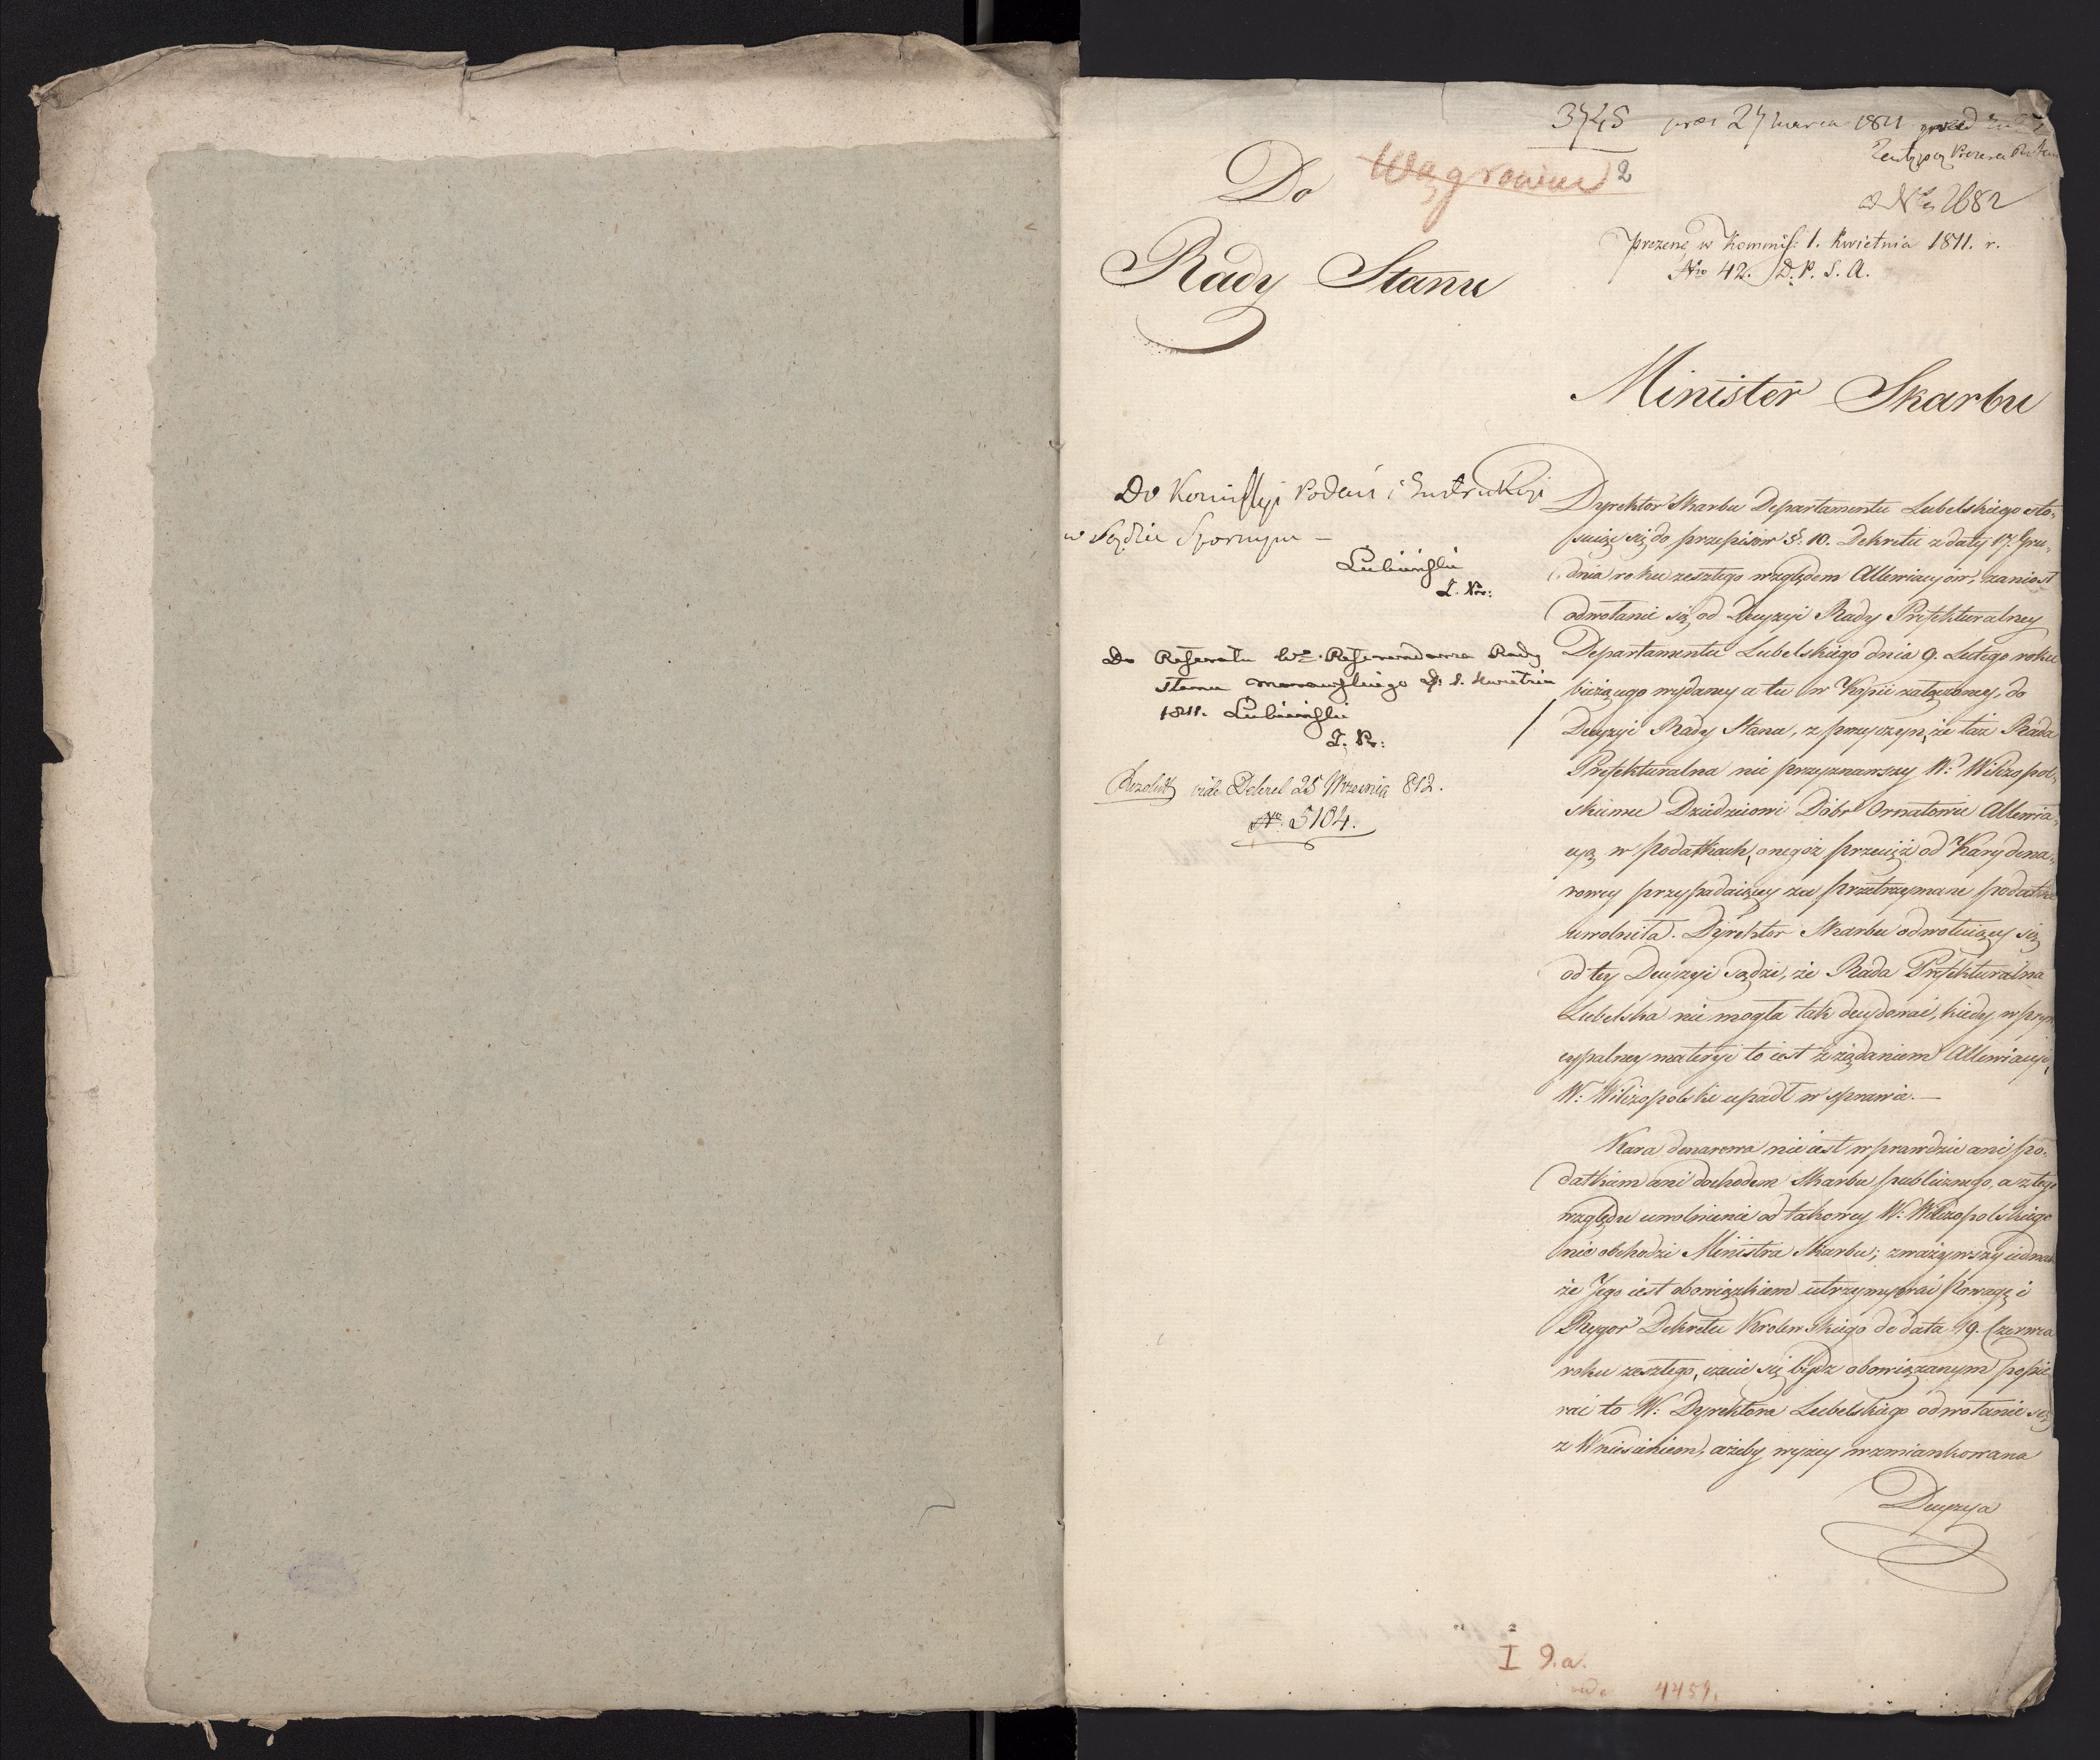 3745 prez 27 marca 1811
Wągrowiec 2
ad Nr 2682
prezent w Kommiss: 1. Kwietnia 1811. r.
Nro 42. D. P. S. A.
Do
Rady Stanu
Minister Skarbu
Do Kommissyi Podań i Instrukcyi
w Sądzie Spornym —
Łubieński
Do Referatu Wo Referendarza Rady
Stanu Morawskiego D: 1. Kwietnia
1811. Łubieński
Rezolut vide Dekret 25 Września 812.
Nr. 5104.
Dyrektor Skarbu Departamentu Lubelskiego sto-
suiąc się do przepisów §. 10. Dekretu z daty 17. Gru-
dnia roku zeszłego względem Allewiacyów, zaniosł
odwołanie się od Decyzyi Rady Prefekturalney
Departamentu Lubelskiego dnia 9. Lutego roku
bieżącego wydaney a tu w Kopii załączoney, do
Decyzyi Rady Stanu, z przyczyn, że taż Rada
Prefekturalna nie przyznawszy W: Wilizopol-
skiemu Dziedzicowi Dóbr Ornatowie Allewia-
cyą w podatkach, onegoż przecież od Kary dena-
rowey przypadaiącey za przetrzymane podatki
uwolniła. Dyrektor Skarbu odwołuiący się
od tey Decyzyi sądzi, że Rada Prefekturalna
Lubelska nie mogła tak decydować, kiedy w pryn
cypalney materyi to iest z żądaniem Allewiacyi,
W: Wilizopolski upadł w sprawie. —
Kara denarowa nie iest wprawdzie ani po-
datkiem ani dochodem Skarbu publicznego, a z tego
względu uwolnienie od takowey W: Wilizopolskiego
nie obchodzi Ministra Skarbu; zważywszy iednak
że Jego iest obowiązkiem utrzymywać Powagę i
Rygor Dekretu Krolewskiego de data 19. Czerwca
roku zeszłego, czuie się bydź obowiązanym popie
rać to W: Dyrektora Lubelskiego odwołanie się
z Wnioskiem, ażeby wyżey wzmiankowana
Decyzya
I 9.a.
4459.